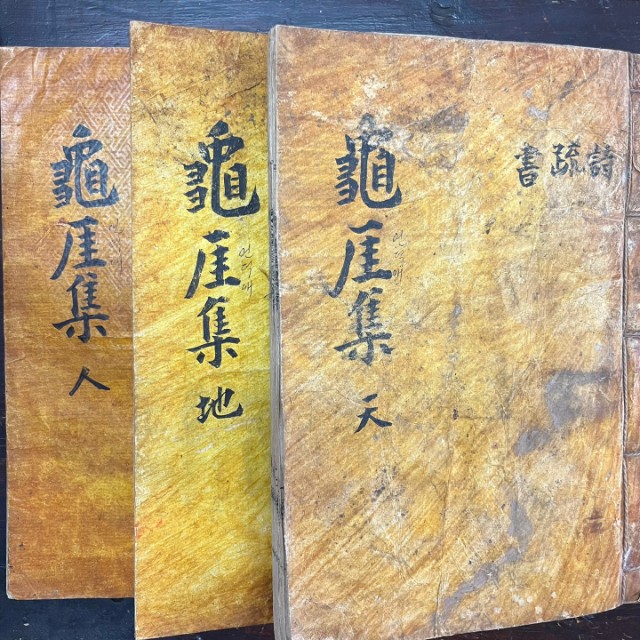 詩疏書
龜厓集 天
언덕애
龜厓集 地
언덕애
龜厓集 人